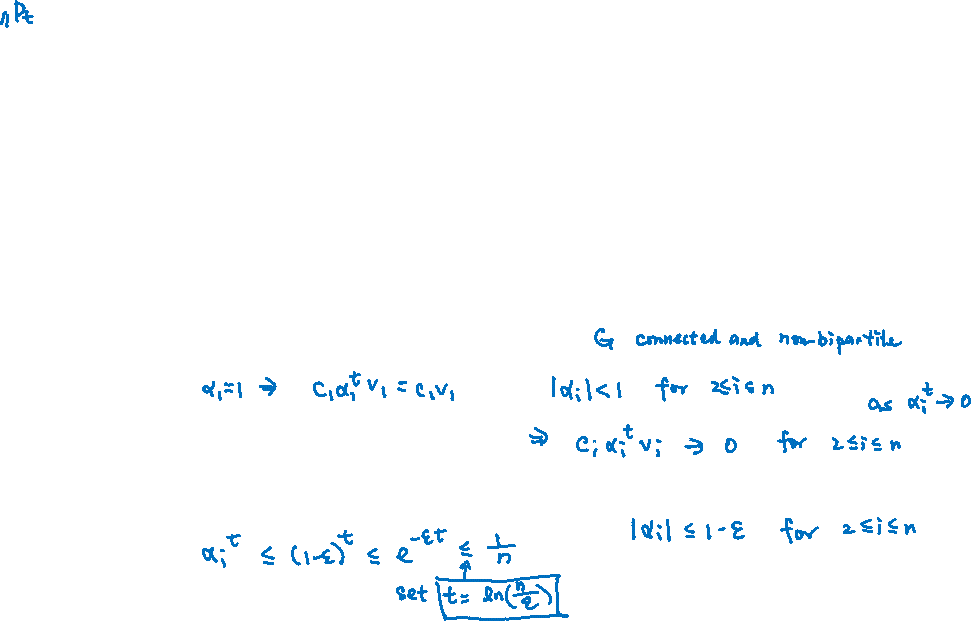 n P_t
G connected and non-bipartite
α₁=1 ⇒ c₁α₁ᵗv₁ = c₁v₁ |αᵢ|<1 for 2≤i≤n as αᵢᵗ→0
⇒ cᵢαᵢᵗvᵢ → 0 for 2≤i≤n
|αᵢ| ≤ 1-ε for 2≤i≤n
αᵢᵗ ≤ (1-ε)ᵗ ≤ e^{-εt} ≤ 1/n
set t= ln(n/ε)